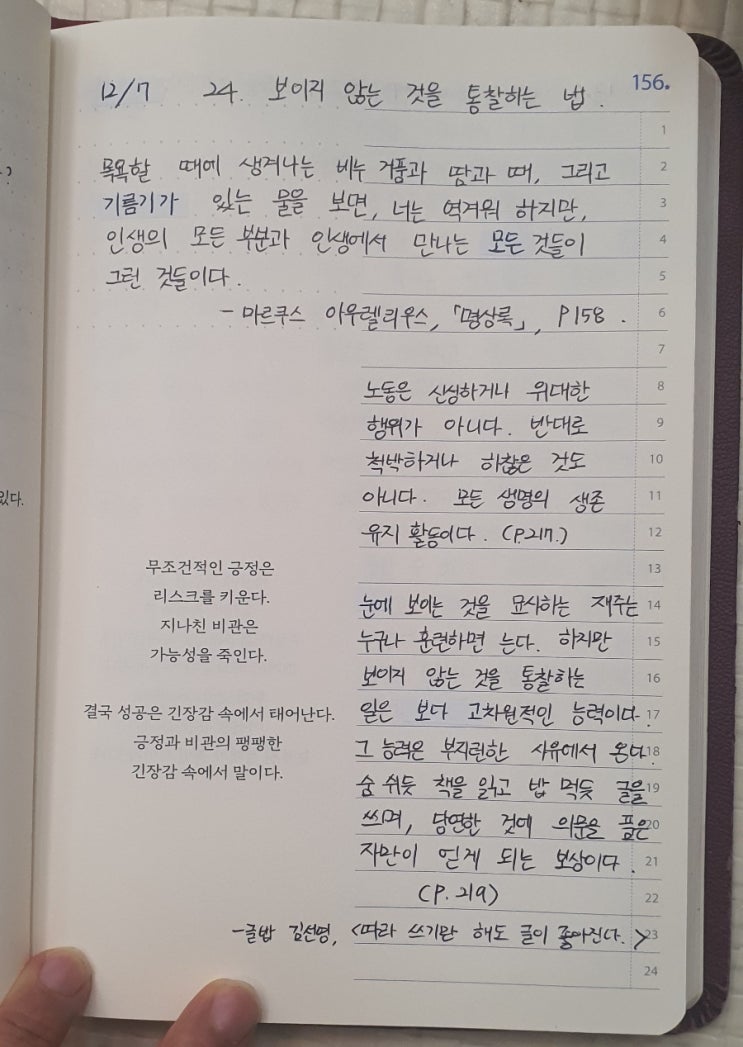 12/7 24. 보이지 않는 것을 통찰하는 법.
156.
1
목욕할 때에 생겨나는 비누 거품과 땀과 때, 그리고
2
기름기가 있는 물을 보면, 너는 역겨워 하지만,
3
인생의 모든 부분과 인생에서 만나는 모든 것들이
4
그런 것들이다.
5
- 마르쿠스 아우렐리우스, 「명상록」, P158.
6
7
노동은 신성하거나 위대한
8
행위가 아니다. 반대로
9
척박하거나 하찮은 것도
10
아니다. 모든 생명의 생존
11
유지 활동이다. (P.217.)
12
13
눈에 보이는 것을 묘사하는 재주는
14
누구나 훈련하면 는다. 하지만
15
보이지 않는 것을 통찰하는
16
일은 보다 고차원적인 능력이다.
17
그 능력은 부지런한 사유에서 온다.
18
숨 쉬듯 책을 읽고 밥 먹듯 글을
19
쓰며, 당연한 것에 의문을 품은
20
자만이 얻게 되는 보상이다.
21
(P. 219)
22
-글밥 김선영, <따라 쓰기만 해도 글이 좋아진다.>
23
24
무조건적인 긍정은
리스크를 키운다.
지나친 비관은
가능성을 죽인다.
결국 성공은 긴장감 속에서 태어난다.
긍정과 비관의 팽팽한
긴장감 속에서 말이다.
있다.